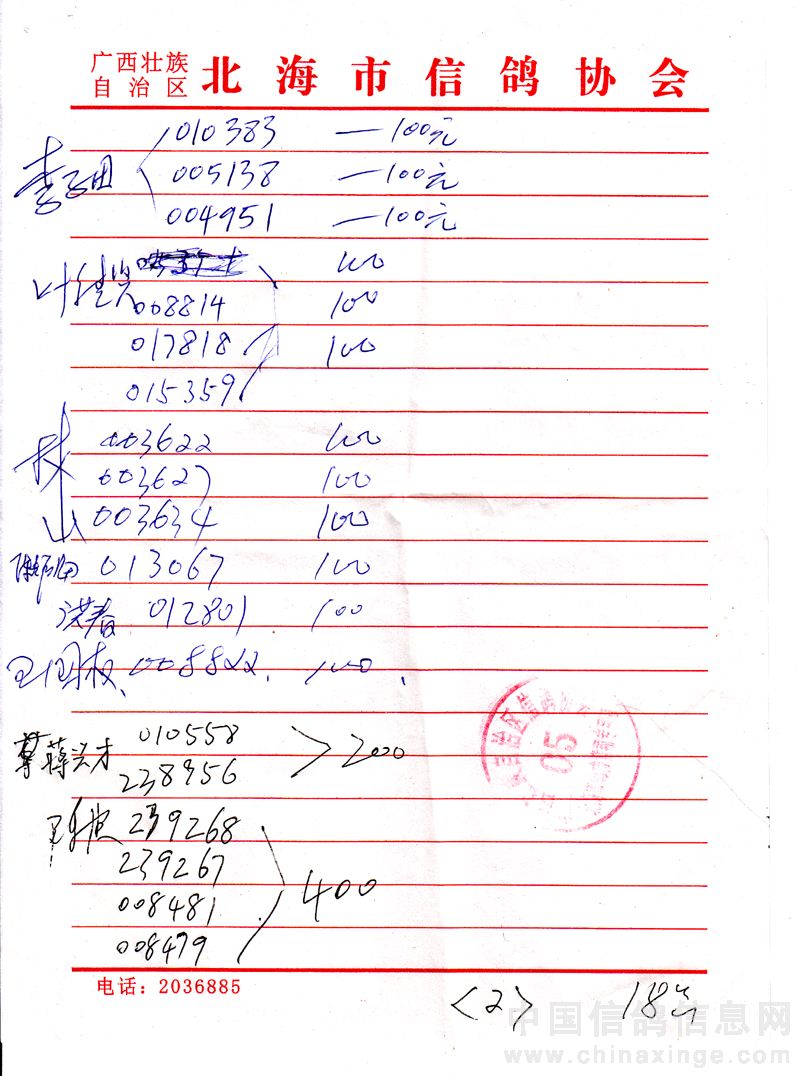 广西壮族
自治区
北海市信鸽协会
010383 —100元
005138 —100元
004951 —100元
100
008814 100
017818 100
015359
林山
003622 100
003627 100
003634 100
013067 100
洪春 012801 100
王国权、008822. 100.
蒋兴才 010558
238956 > 200
239268
239267
008481
008479
400
05
电话：2036885
<2>
中国信鸽信息网
www.chinaxinge.com